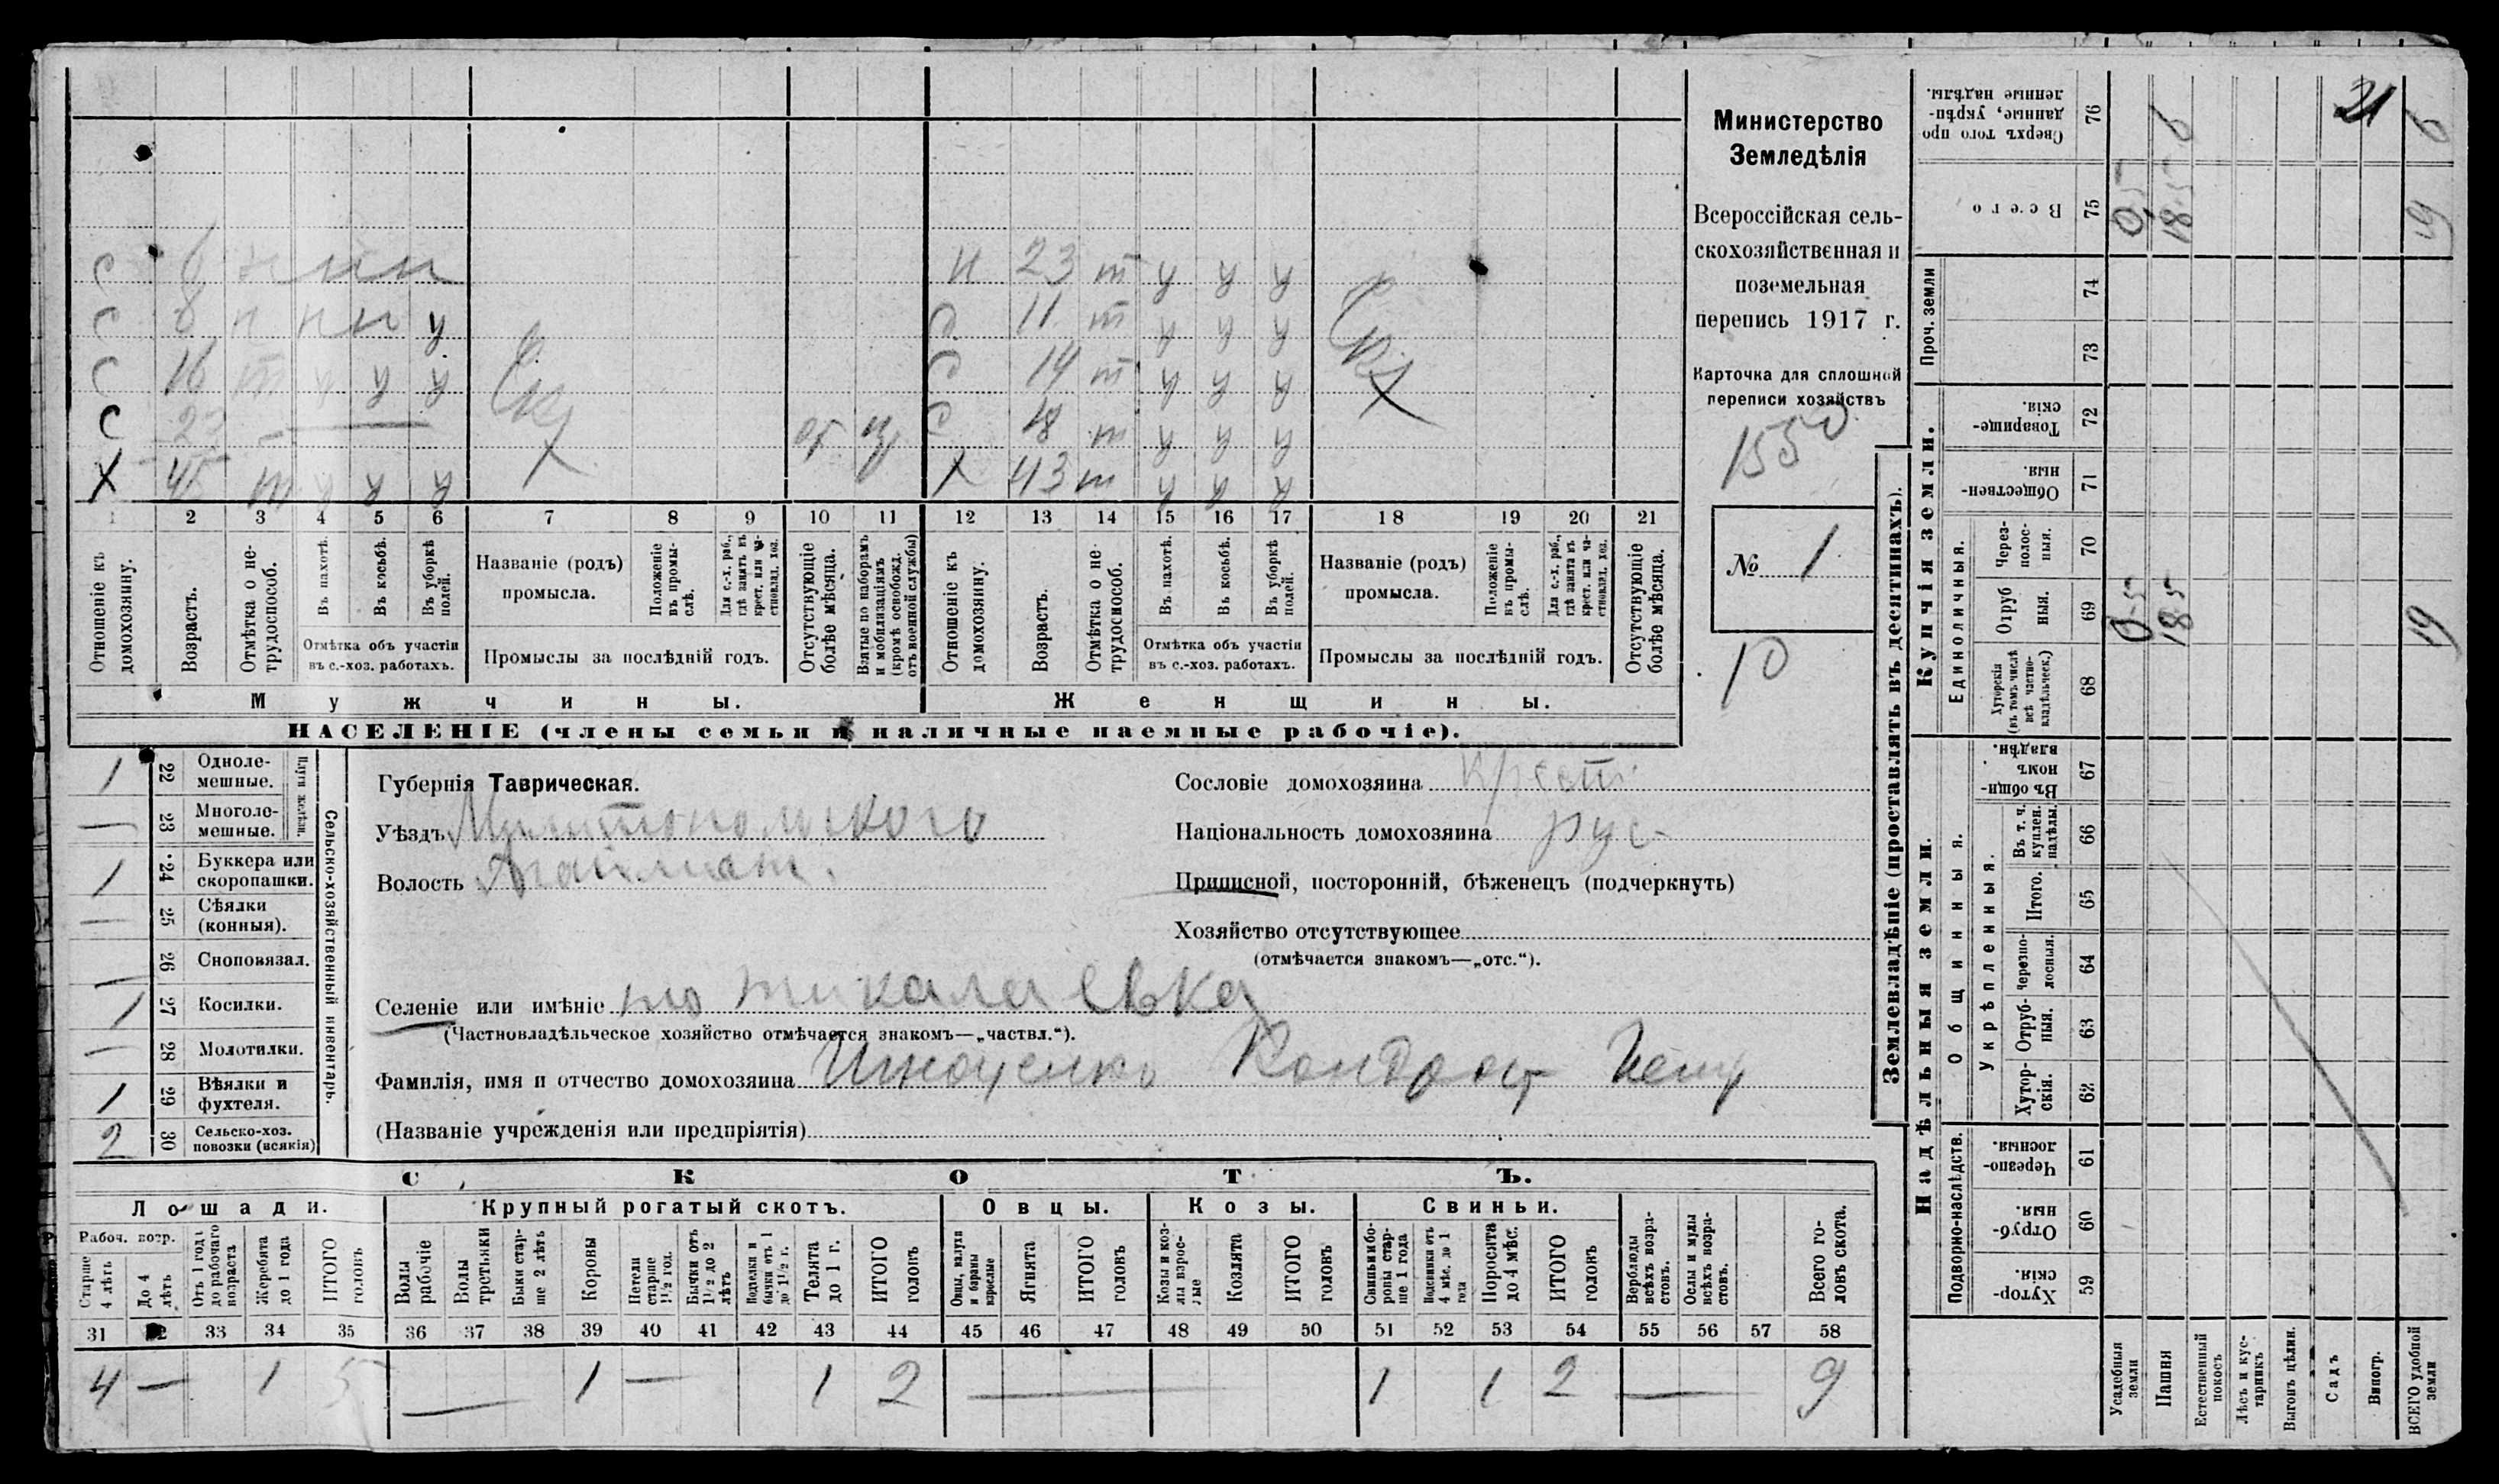 С 6 н н н н
Н 23 т у у у
С 8 н н н у
Д 11 т у у у
С 16 т у у у
Д 14 т у у у
С 23
Д 18 т у у у
Х 45 т у у у
Х 43 т у у у
1 2 3 4 5 6 7 8 9 10 11 12 13 14 15 16 17 18 19 20 21
Отношеніе къ домохозяину.
Возрастъ.
Отмѣтка о не-трудоспособ.
Въ пахотѣ.
Въ косьбѣ.
Въ уборкѣ полей.
Отмѣтка объ участіи въ с.-хоз. работахъ.
Названіе (родъ) промысла.
Положеніе въ промы-слѣ.
Для с.-х. раб., гдѣ занятъ въ крест. или ча-стновлад. хоз.
Промыслы за послѣдній годъ.
Отсутствующіе болѣе мѣсяца.
Взятые по наборамъ и мобилизаціямъ (кромѣ освобожд. отъ военной службы)
Отношеніе къ домохозяину.
Возрастъ.
Отмѣтка о не-трудоспособ.
Въ пахотѣ.
Въ косьбѣ.
Въ уборкѣ полей.
Отмѣтка объ участіи въ с.-хоз. работахъ.
Названіе (родъ) промысла.
Положеніе въ промы-слѣ.
Для с.-х. раб., гдѣ занята въ крест. или ча-стновлад. хоз.
Промыслы за послѣдній годъ.
Отсутствующіе болѣе мѣсяца.
Мужчины.
Женщины.
НАСЕЛЕНІЕ (члены семьи и наличные наемные рабочіе).
Министерство
Земледѣлія
Всероссійская сель-
скохозяйственная и
поземельная
перепись 1917 г.
Карточка для сплошной
переписи хозяйствъ
1550
№ 1
10
1 22 Одноле-мешные.
— 23 Многоле-мешные.
Плуги желѣзн.
1 24 Буккера или скоропашки.
— 25 Сѣялки (конныя).
— 26 Сноповязал.
1 27 Косилки.
— 28 Молотилки.
1 29 Вѣялки и фухтеля.
2 30 Сельско-хоз. повозки (всякія)
Сельско-хозяйственный инвентарь.
Губернія Таврическая.
Уѣздъ Мелитопольского
Волость
Селеніе или имѣніе
(Частновладѣльческое хозяйство отмѣчается знакомъ—„частвл.“).
Фамилія, имя и отчество домохозяина Кондрат
(Названіе учрежденія или предпріятія)
Сословіе домохозяина крест
Національность домохозяина рус
Приписной, посторонній, бѣженецъ (подчеркнуть)
Хозяйство отсутствующее
(отмѣчается знакомъ—„отс.“).
СКОТЪ.
Лошади.
Крупный рогатый скотъ.
Овцы.
Козы.
Свиньи.
Рабоч. возр.
Старше 4 лѣтъ
До 4 лѣтъ
Отъ 1 года до рабочаго возраста
Жеребята до 1 года
ИТОГО головъ
Волы рабочіе
Волы третьяки
Быки стар-ше 2 лѣтъ
Коровы
Нетели старше 1½ год.
Бычки отъ 1½ до 2 лѣтъ
Подтелки и бычки отъ 1 до 1½ г.
Телята до 1 г.
ИТОГО головъ
Овцы, валухи и бараны взрослые
Ягнята
ИТОГО головъ
Козы и коз-лы взрос-лые
Козлята
ИТОГО головъ
Свиньи и бо-ровы стар-ше 1 года
Подсвинки отъ 4 мѣс. до 1 года
Поросята до 4 мѣс.
ИТОГО головъ
Верблюды всѣхъ возра-стовъ.
Ослы и мулы всѣхъ возра-стовъ.
Всего го-ловъ скота.
31 32 33 34 35 36 37 38 39 40 41 42 43 44 45 46 47 48 49 50 51 52 53 54 55 56 57 58
4 — 1 5 — 1 — 1 2 — 1 1 2 — 9
Землевладѣніе (проставлять въ десятинахъ).
Купчія земли.
Надѣльныя земли.
Сверхъ того про данные, укрѣп-ленные надѣлы. 76
Всего 75
Проч. земли 74 73
Товарище-скія. 72
Обществен-ныя. 71
Единоличныя.
Через-полос-ныя. 70
Отруб ныя. 69
Хуторскія (въ томъ числѣ всѣ частно-владѣльческ.) 68
Общинныя.
Въ общи-номъ владѣн. 67
Укрѣпленныя.
Въ т. ч. куплен. надѣлы. 66
Итого. 65
Черезпо-лосныя. 64
Отруб-ныя. 63
Хутор-скія. 62
Подворно-наслѣдств.
Черезпо-лосныя. 61
Отруб-ныя. 60
Хутор-скія. 59
Усадебныя земли 0,5 0,5
Пашня 18,5 18,5 6
Естественный покосъ
Лѣсъ и кус-тарникъ
Выгонъ цѣлин.
Садъ
Виногр.
ВСЕГО удобной земли 19 19 6
21